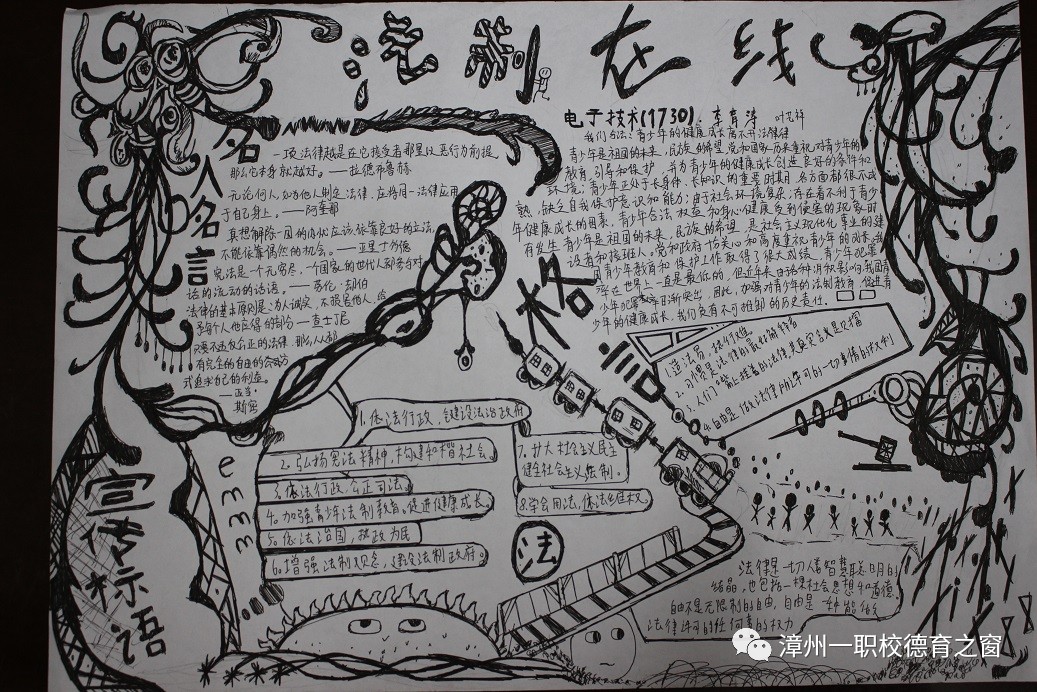 法制在线
名人名言
一项法律越是在它接受者那里以恶行为前提
那么它本身就越好。——拉德布鲁赫
无论何人,如为他人制定法律,应将同一法律应用
于自己身上。——阿奎那
真想解除一国的内忧应该依靠良好的立法,
不能依靠偶然的机会。——亚里士多德
宪法是一个无穷尽、一个国家的世代人都参与对
话的流动的话语。——劳伦·却伯
法律的基本原则是:为人诚实,不损害他人,给
予每个人他应得的部分——查士丁尼
只要不违反公正的法律,那么人人都
有完全的自由以自己的方
式追求自己的利益。
——亚当·
斯密
电子技术(1730) 李育涛
我们合法:青少年的健康成长离不开法律
青少年是祖国的未来,民族的希望,党和国家历来重视对青少年的
教育、引导和保护,并为青少年的健康成长创造良好的条件和
环境;青少年正处于长身体、长知识的重要时期,各方面都很不成
熟,缺乏自我保护意识和能力;由于社会环境复杂,存在着不利于青少
年健康成长的因素,青少年合法权益和身心健康受到侵害的现象时
有发生。青少年是祖国的未来,民族的希望,是社会主义现代化事业的建
设者和接班人。党和政府十分关心和高度重视青少年的成长,我
国青少年教育和保护工作取得了很大成绩,青少年犯罪
率在世界上一直是最低的,但近年来由于各种消极影响,我国青
少年犯罪率日渐突出,因此,加强对青少年的法制教育,促进青
少年的健康成长,我们负有不可推卸的历史责任。
格言
1.造法易,执行难
2.习惯是法律的最好解释者
3.人们嘴上挂着的法律,其真实含义是财富
4.自由是做法律所许可的一切事情的权利
emmm
1.依法行政,全建设法治政府
2.弘扬宪法精神,构建和楷社会。
3.依法行政,公正司法
4.加强青少年法制教育。促进健康成长。
5.依法治国,执政为民
6.增强法制观念,建设法制政府。
7.扩大社会主义民主
健全社会主义法制。
8.学会用法,依法维权
法
宣传标语
法律是一切人类智慧聪明的
结晶,也包括一种社会思想和道德.
自由不是无限制的自由,自由是一种能做
法律许可的任何事的权力
漳州一职校德育之窗